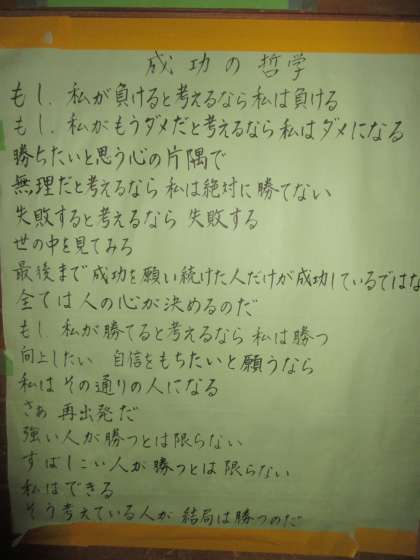 成功の哲学
もし、私が負けると考えるなら私は負ける
もし、私がもうダメだと考えるなら私はダメになる
勝ちたいと思う心の片隅で
無理だと考えるなら私は絶対に勝てない
失敗すると考えるなら失敗する
世の中を見てみろ
最後まで成功を願い続けた人だけが成功しているではな
全ては人の心が決めるのだ
もし私が勝てると考えるなら私は勝つ
向上したい 自信をもちたいと願うなら
私はその通りの人になる
さあ 再出発だ
強い人が勝つとは限らない
すばしこい人が勝つとは限らない
私はできる
そう考えている人が結局は勝つのだ